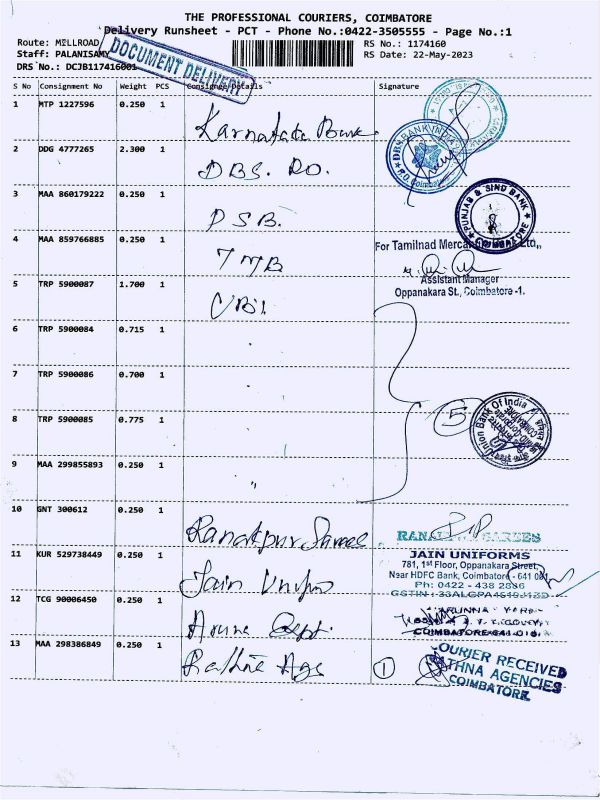 THE PROFESSIONAL COURIERS, COIMBATORE
Delivery Runsheet - PCT - Phone No.:0422-3505555 - Page No.:1
Route: MILLROAD RS No.: 1174160
Staff: PALANISAMY RS Date: 22-May-2023
DRS No.: DCJB117416001
DOCUMENT DELIVERY
S No Consignment No Weight PCS Consignee Details Signature
1 MTP 1227596 0.250 1 Karnataka Bank
2 DDG 4777265 2.300 1 DBS. RO.
DBS BANK INDIA
R.O. Coimbatore
3 MAA 860179222 0.250 1 PSB.
PUNJAB & SIND BANK
COIMBATORE
4 MAA 859766885 0.250 1 TMB
For Tamilnad Mercantile Bank Ltd.,
Assistant Manager
Oppanakara St., Coimbatore -1.
5 TRP 5900087 1.700 1 UBI
6 TRP 5900084 0.715 1
7 TRP 5900086 0.700 1
8 TRP 5900085 0.775 1
5
Union Bank Of India
9 MAA 299855893 0.250 1 "
10 GNT 300612 0.250 1 Ranakpur Sarees
SAREES
11 KUR 529738449 0.250 1 Jain Uniforms
JAIN UNIFORMS
781, 1st Floor, Oppanakara Street,
Near HDFC Bank, Coimbatore - 641 001.
Ph: 0422 - 438 2886
12 TCG 90006450 0.250 1 Aruna
COIMBATORE-641 018.
13 MAA 298386849 0.250 1 Rathna Ags
1
COURIER RECEIVED
THNA AGENCIES
COIMBATORE